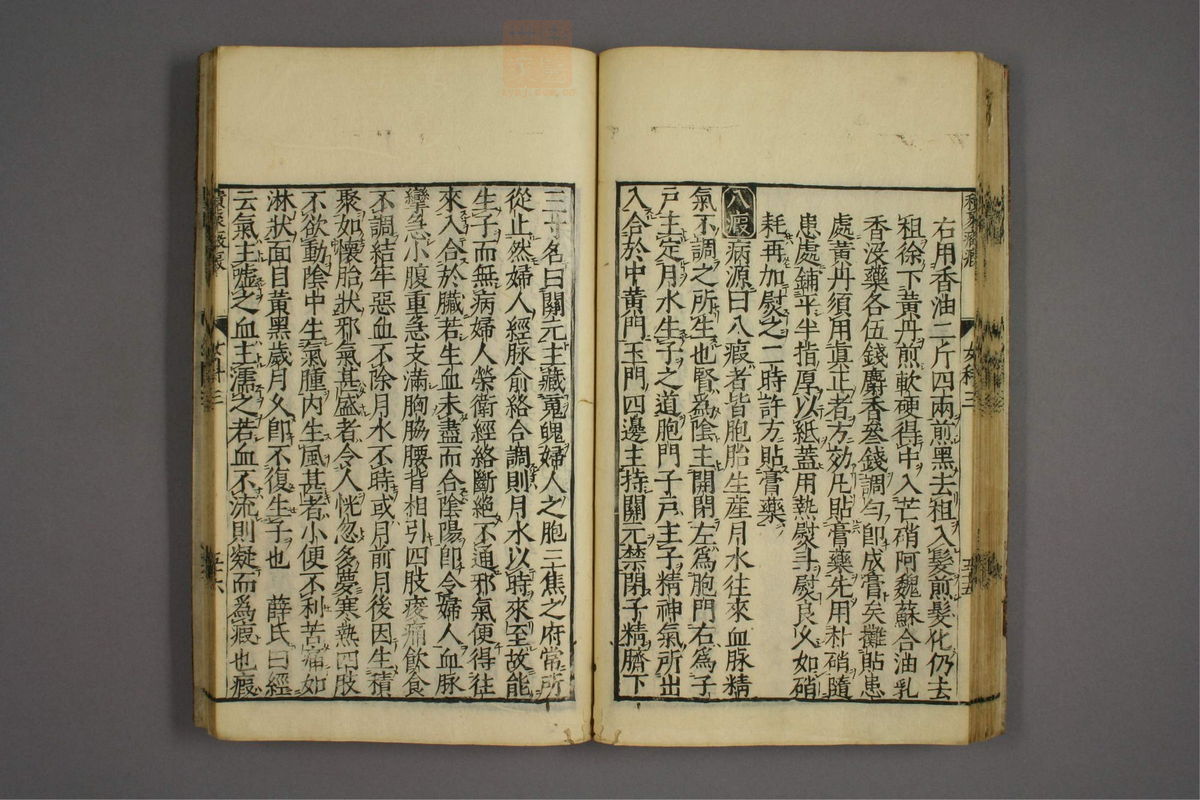 右用香油二斤四兩煎黑去柤入髮煎髮化仍去
柤徐下黃丹煎軟硬得中入芒硝阿魏蘇合油乳
香沒藥各伍錢麝香叄錢調勻卽成膏矣攤貼患
處黃丹須用眞正者方効凢貼膏藥先用朴硝隨
患處鋪平半指厚以紙蓋用熱熨斗熨良乆如硝
耗再加熨之二時許方貼膏藥
八瘕 病源曰八瘕者皆胞胎生産月水往來血脉精
氣不調之所生也腎爲陰主開閉左爲胞門右爲子
戸主定月水生子之道胞門子戸主子精神氣所出
入合於中黃門玉門四邊主持關元禁閉子精臍下
三寸名曰關元主藏䰟魄婦人之胞三焦之府常所
從止然婦人經脉俞絡合調則月水以時來至故能
生子而無病婦人榮衛經絡斷絶不通邪氣便得往
來入合於臓若生血未盡而合陰陽卽令婦人血脉
攣急小腹重急支滿胸脇腰背相引四肢痠痛飲食
不調結牢惡血不除月水不時或月前月後因生積
聚如懷胎狀邪氣甚盛者令人恍忽多夢寒熱四肢
不欲動陰中生氣腫内生風甚者小便不利苦痛如
淋狀面目黃黑歲月乆卽不復生子也 薛氏曰經
云氣主噓之血主濡之若血不流則凝而爲瘕也瘕
女科三
五十五
女科三
五十六